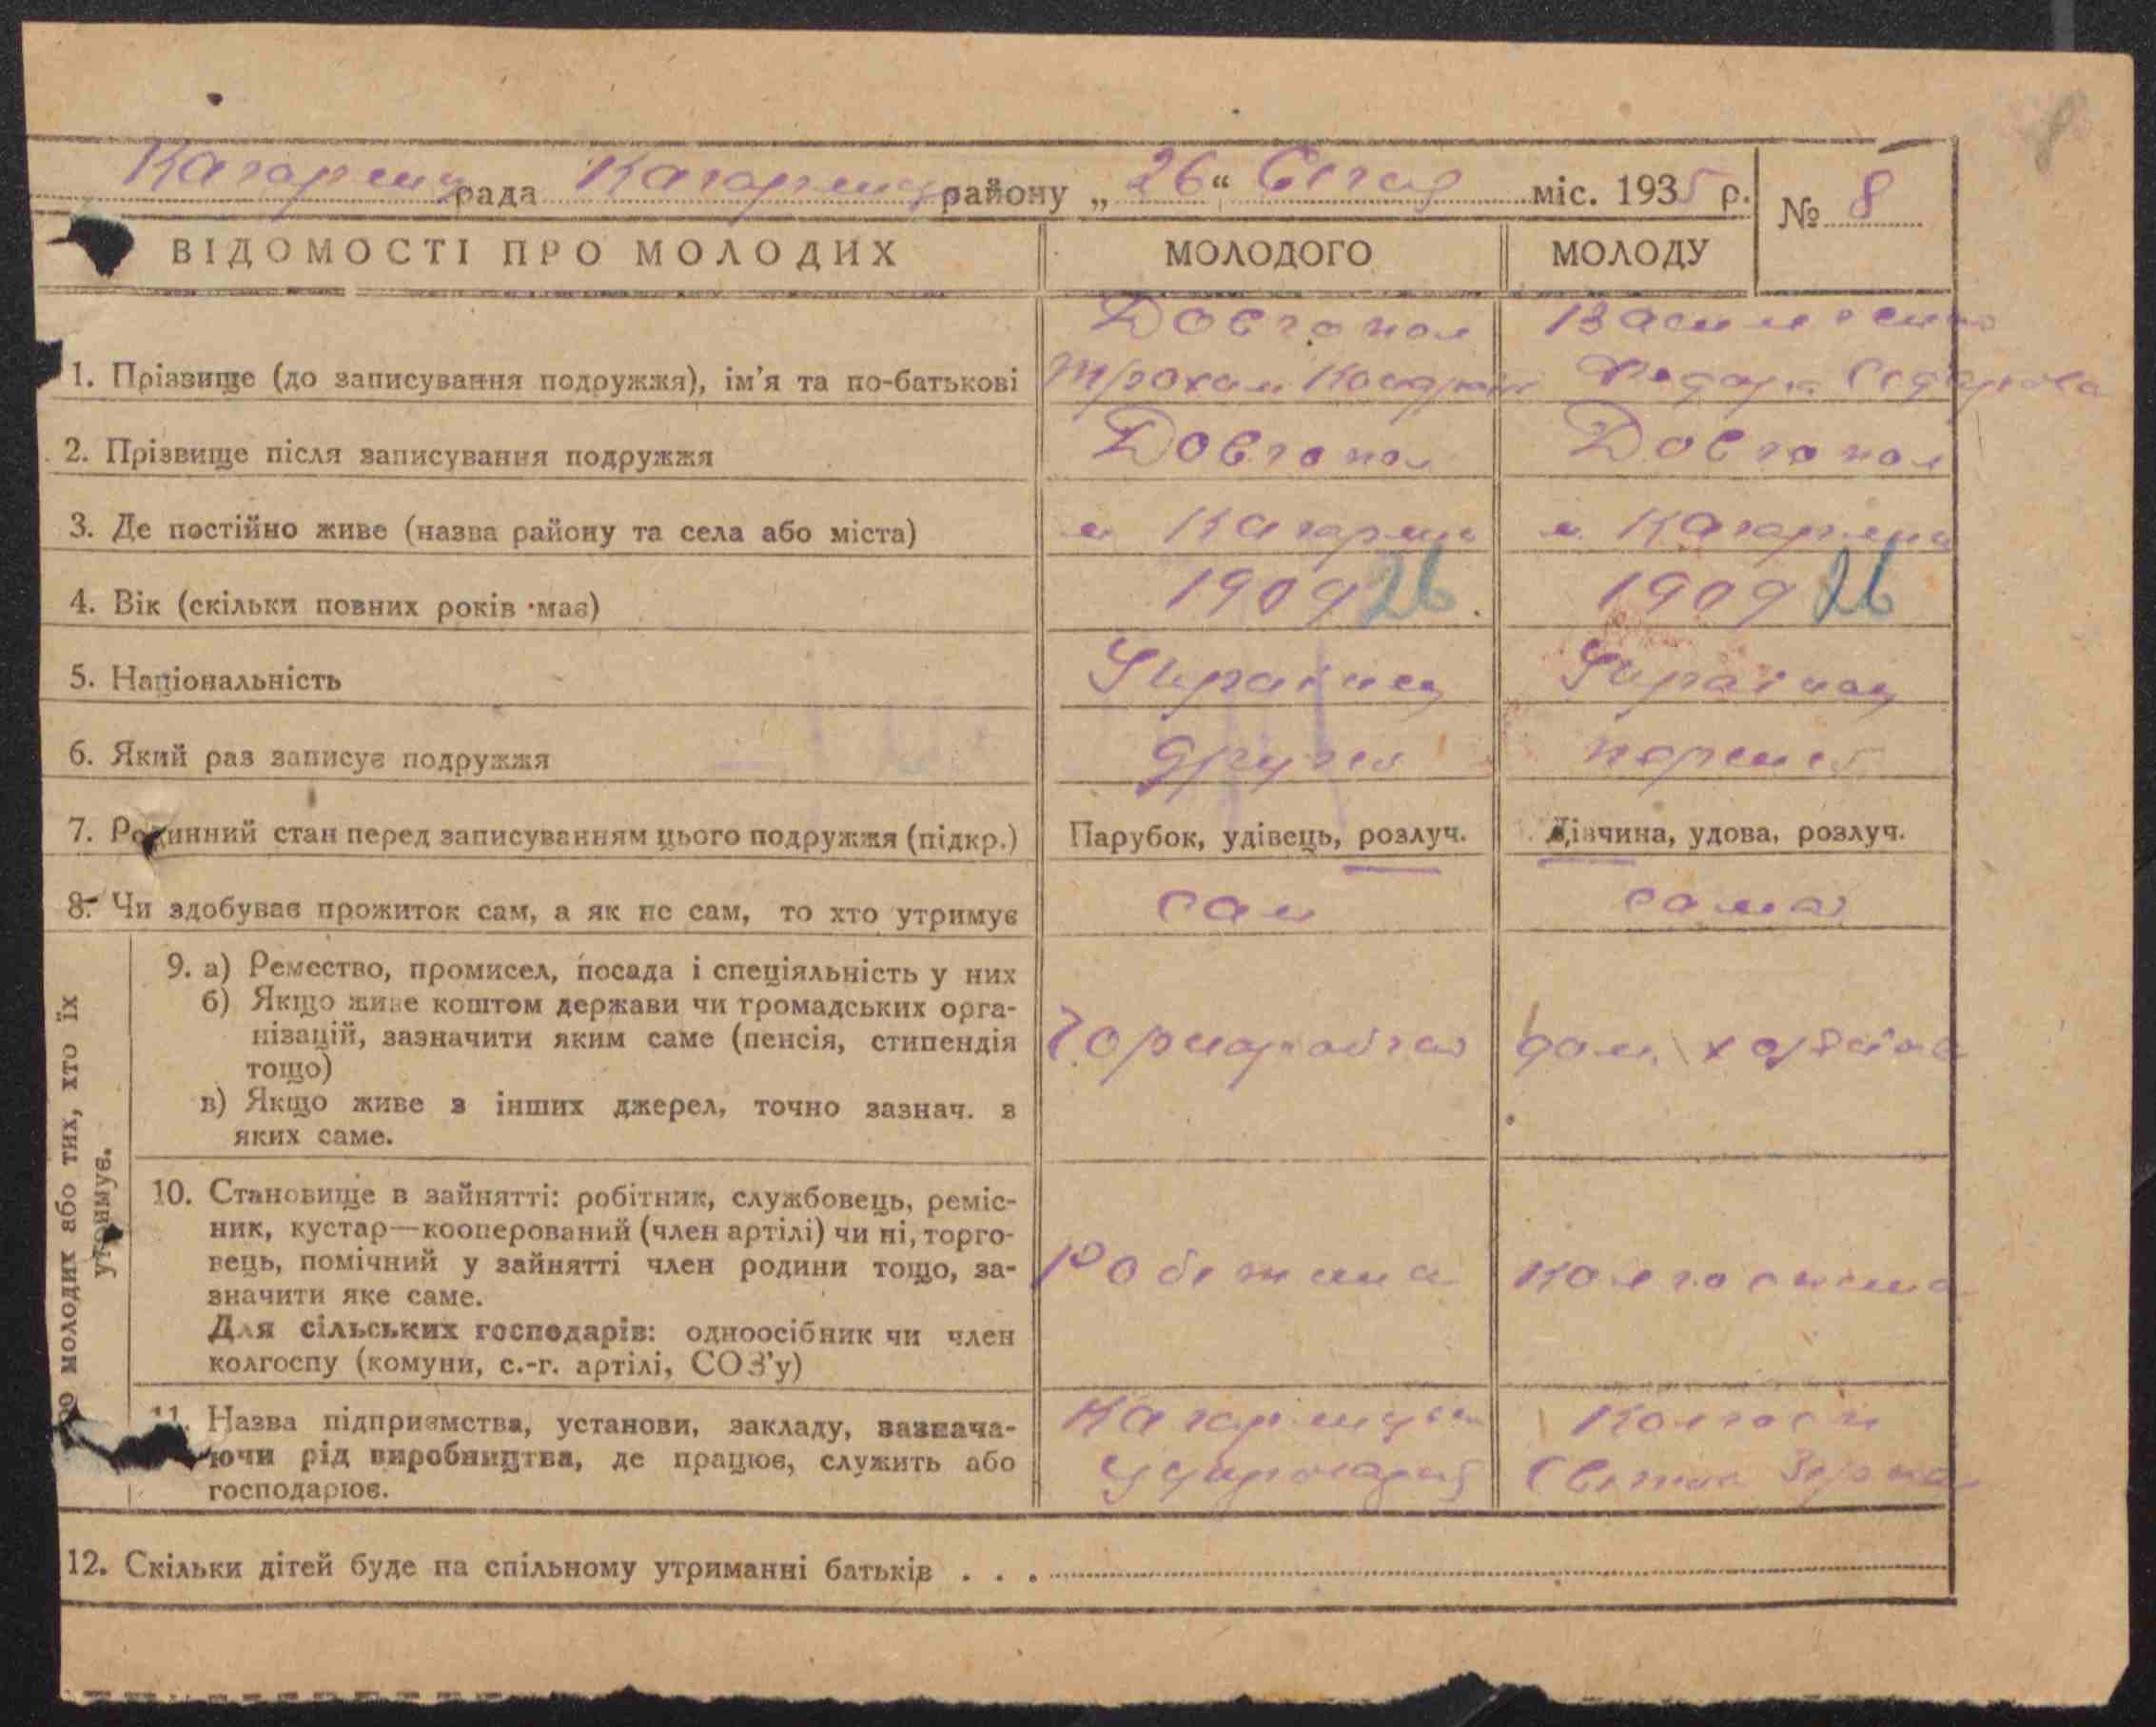 8
Кагарлиц рада Кагарлиц району „26“ Січня міс. 1935 р. № 8
ВІДОМОСТІ ПРО МОЛОДИХ МОЛОДОГО МОЛОДУ
1. Прізвище (до записування подружжя), ім'я та по-батькові Довгопол Василенко
Трохим Кондрат
2. Прізвище після записування подружжя Довгопол Довгопол
3. Де постійно живе (назва району та села або міста) м Кагарлик м. Кагарлик
4. Вік (скільки повних років має) 1909 26 1909 26
5. Національність Українец Українц
6. Який раз записує подружжя другий перший
7. Родинний стан перед записуванням цього подружжя (підкр.) Парубок, удівець, розлуч. Дівчина, удова, розлуч.
8. Чи здобуває прожиток сам, а як не сам, то хто утримує сам сама
9. а) Ремество, промисел, посада і спеціяльність у них
б) Якщо живе коштом держави чи громадських орга-
нізацій, зазначити яким саме (пенсія, стипендія
тощо)
в) Якщо живе з інших джерел, точно зазнач. з
яких саме.
Чорнороб дом.
10. Становище в зайнятті: робітник, службовець, реміс-
ник, кустар—кооперований (член артілі) чи ні, торго-
вець, помічний у зайнятті член родини тощо, за-
значити яке саме.
Для сільських господарів: одноосібник чи член
колгоспу (комуни, с.-г. артілі, СОЗ'у)
Робітник колгоспниц
11. Назва підприємства, установи, закладу, зазнача-
ючи рід виробництва, де працює, служить або
господарює.
Кагарлицьк Колгосп
Цукрозавод
12. Скільки дітей буде на спільному утриманні батьків . . .
ро молодих або тих, хто їх
утримує.